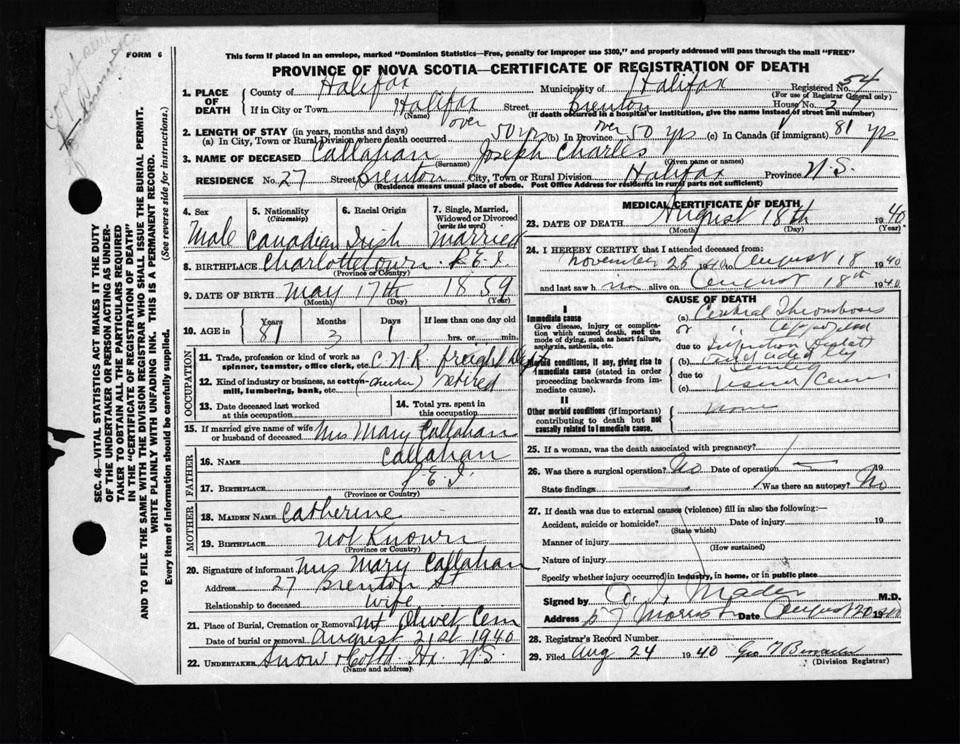 FORM 6
This form if placed in an envelope, marked "Dominion Statistics—Free, penalty for improper use $300," and properly addressed will pass through the mail "FREE"
PROVINCE OF NOVA SCOTIA—CERTIFICATE OF REGISTRATION OF DEATH
SEC. 46—VITAL STATISTICS ACT MAKES IT THE DUTY
OF THE UNDERTAKER OR PERSON ACTING AS UNDER-
TAKER TO OBTAIN ALL THE PARTICULARS REQUIRED
IN THE "CERTIFICATE OF REGISTRATION OF DEATH"
AND TO FILE THE SAME WITH THE DIVISION REGISTRAR WHO SHALL ISSUE THE BURIAL PERMIT.
WRITE PLAINLY WITH UNFADING INK. THIS IS A PERMANENT RECORD.
Every item of information should be carefully supplied. (See reverse side for instructions.)
1. PLACE OF DEATH County of Halifax Municipality of Halifax Registered No. 54
(For use of Registrar General only)
If in City or Town Halifax Street Brenton House No. 2
(Name) (If death occurred in a hospital or institution, give the name instead of street and number)
2. LENGTH OF STAY (in years, months and days)
(a) In City, Town or Rural Division where death occurred over 50 yrs (b) In Province over 50 yrs (c) In Canada (if immigrant) 81 yrs
3. NAME OF DECEASED Callahan Joseph Charles
(Surname) (Given name or names)
RESIDENCE No. 27 Street Brenton City, Town or Rural Division Halifax Province N.S.
(Residence means usual place of abode. Post Office Address for residents in rural parts not sufficient)
4. Sex Male
5. Nationality (Citizenship) Canadian
6. Racial Origin Irish
7. Single, Married, Widowed or Divorced (write the word) Married
8. BIRTHPLACE Charlottetown P.E.I.
(Province or Country)
9. DATE OF BIRTH May 17th 1859
(Month) (Day) (Year)
10. AGE in Years 81 Months 3 Days 1 If less than one day old
hrs. or min.
OCCUPATION
11. Trade, profession or kind of work as spinner, teamster, office clerk, etc. C.N.R. freight
12. Kind of industry or business, as cotton-mill, lumbering, bank, etc. (checker) retired
13. Date deceased last worked at this occupation
14. Total yrs. spent in this occupation
15. If married give name of wife or husband of deceased Mrs Mary Callahan
FATHER
16. NAME Callahan
17. BIRTHPLACE P.E.I.
(Province or Country)
MOTHER
18. MAIDEN NAME Catherine
19. BIRTHPLACE Not Known
(Province or Country)
20. Signature of informant Mrs Mary Callahan
Address 27 Brenton St
Relationship to deceased Wife
21. Place of Burial, Cremation or Removal Mt Olivet Cem
Date of burial or removal August 21st 1940
22. UNDERTAKER Snow & Co Ltd Hx. N.S.
(Name and address)
MEDICAL CERTIFICATE OF DEATH
23. DATE OF DEATH August 18th 1940
(Month) (Day) (Year)
24. I HEREBY CERTIFY that I attended deceased from:
November 25 to August 18 1940
and last saw him alive on August 18th 1940
CAUSE OF DEATH
I
Immediate cause
Give disease, injury or complication which caused death, not the mode of dying, such as heart failure, asphyxia, asthenia, etc.
(a) Thrombosis
or
due to
Morbid conditions, if any, giving rise to immediate cause (stated in order proceeding backwards from immediate cause).
(b)
due to Senility
(c)
II
Other morbid conditions (if important) contributing to death but not causally related to immediate cause.
none
25. If a woman, was the death associated with pregnancy?
26. Was there a surgical operation? No Date of operation 19
State findings Was there an autopsy? No
27. If death was due to external causes (violence) fill in also the following:—
Accident, suicide or homicide? Date of injury 19
(State which)
Manner of injury
(How sustained)
Nature of injury
Specify whether injury occurred in industry, in home, or in public place
Signed by Mader M.D.
Address 57 Morris St Date August 20 1940
28. Registrar's Record Number
29. Filed Aug 24 1940 Geo
(Division Registrar)